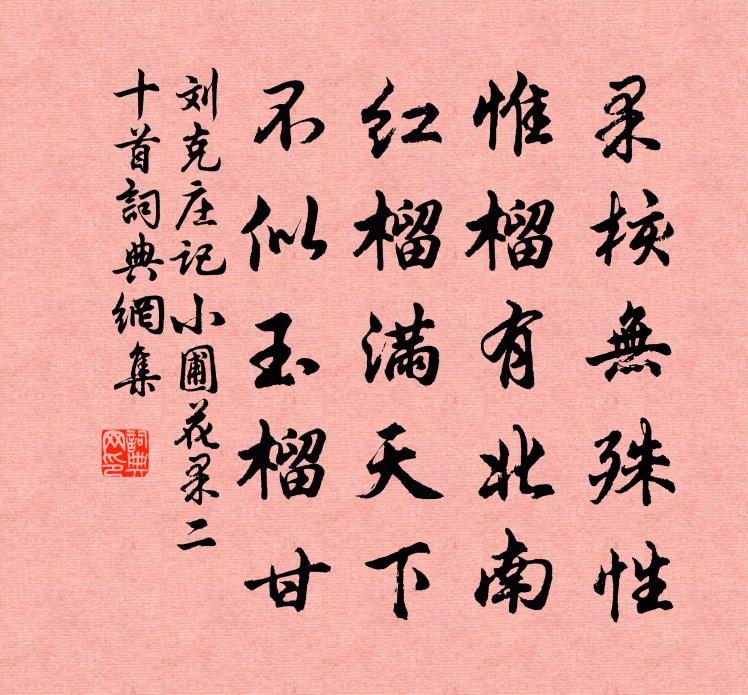 果核無殊性
惟榴有北南
红榴滿天下
不似玉榴甘
刘克庄记小圃花果二
十首詞典網集
詞典网印